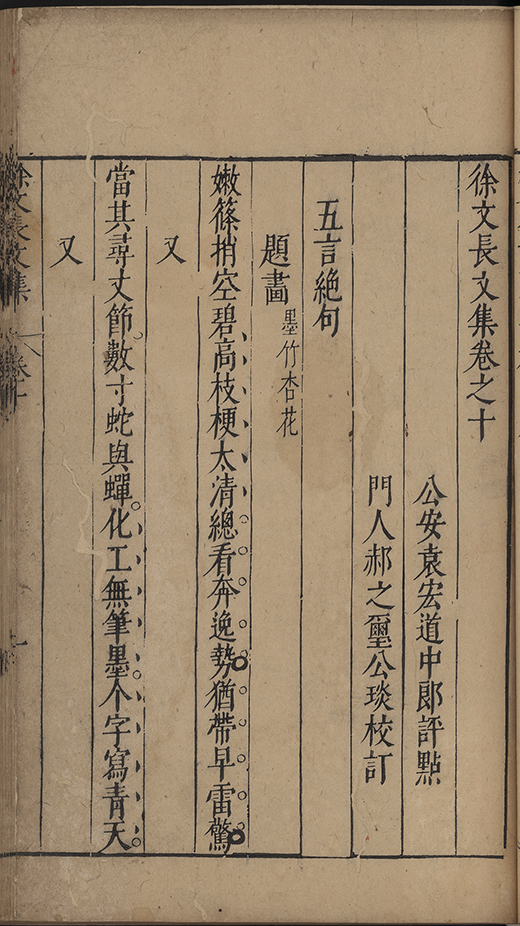 徐文長文集卷之十
公安袁宏道中郎評點
門人郝之璽公琰校訂
五言絕句
題畫墨竹杏花
嫩篠捎空碧高枝梗太清總看奔逸勢猶帶早雷驚
又
當其尋丈節數寸蛇與蟬化工無筆墨个字寫青天
又
徐文長文集
卷十
一